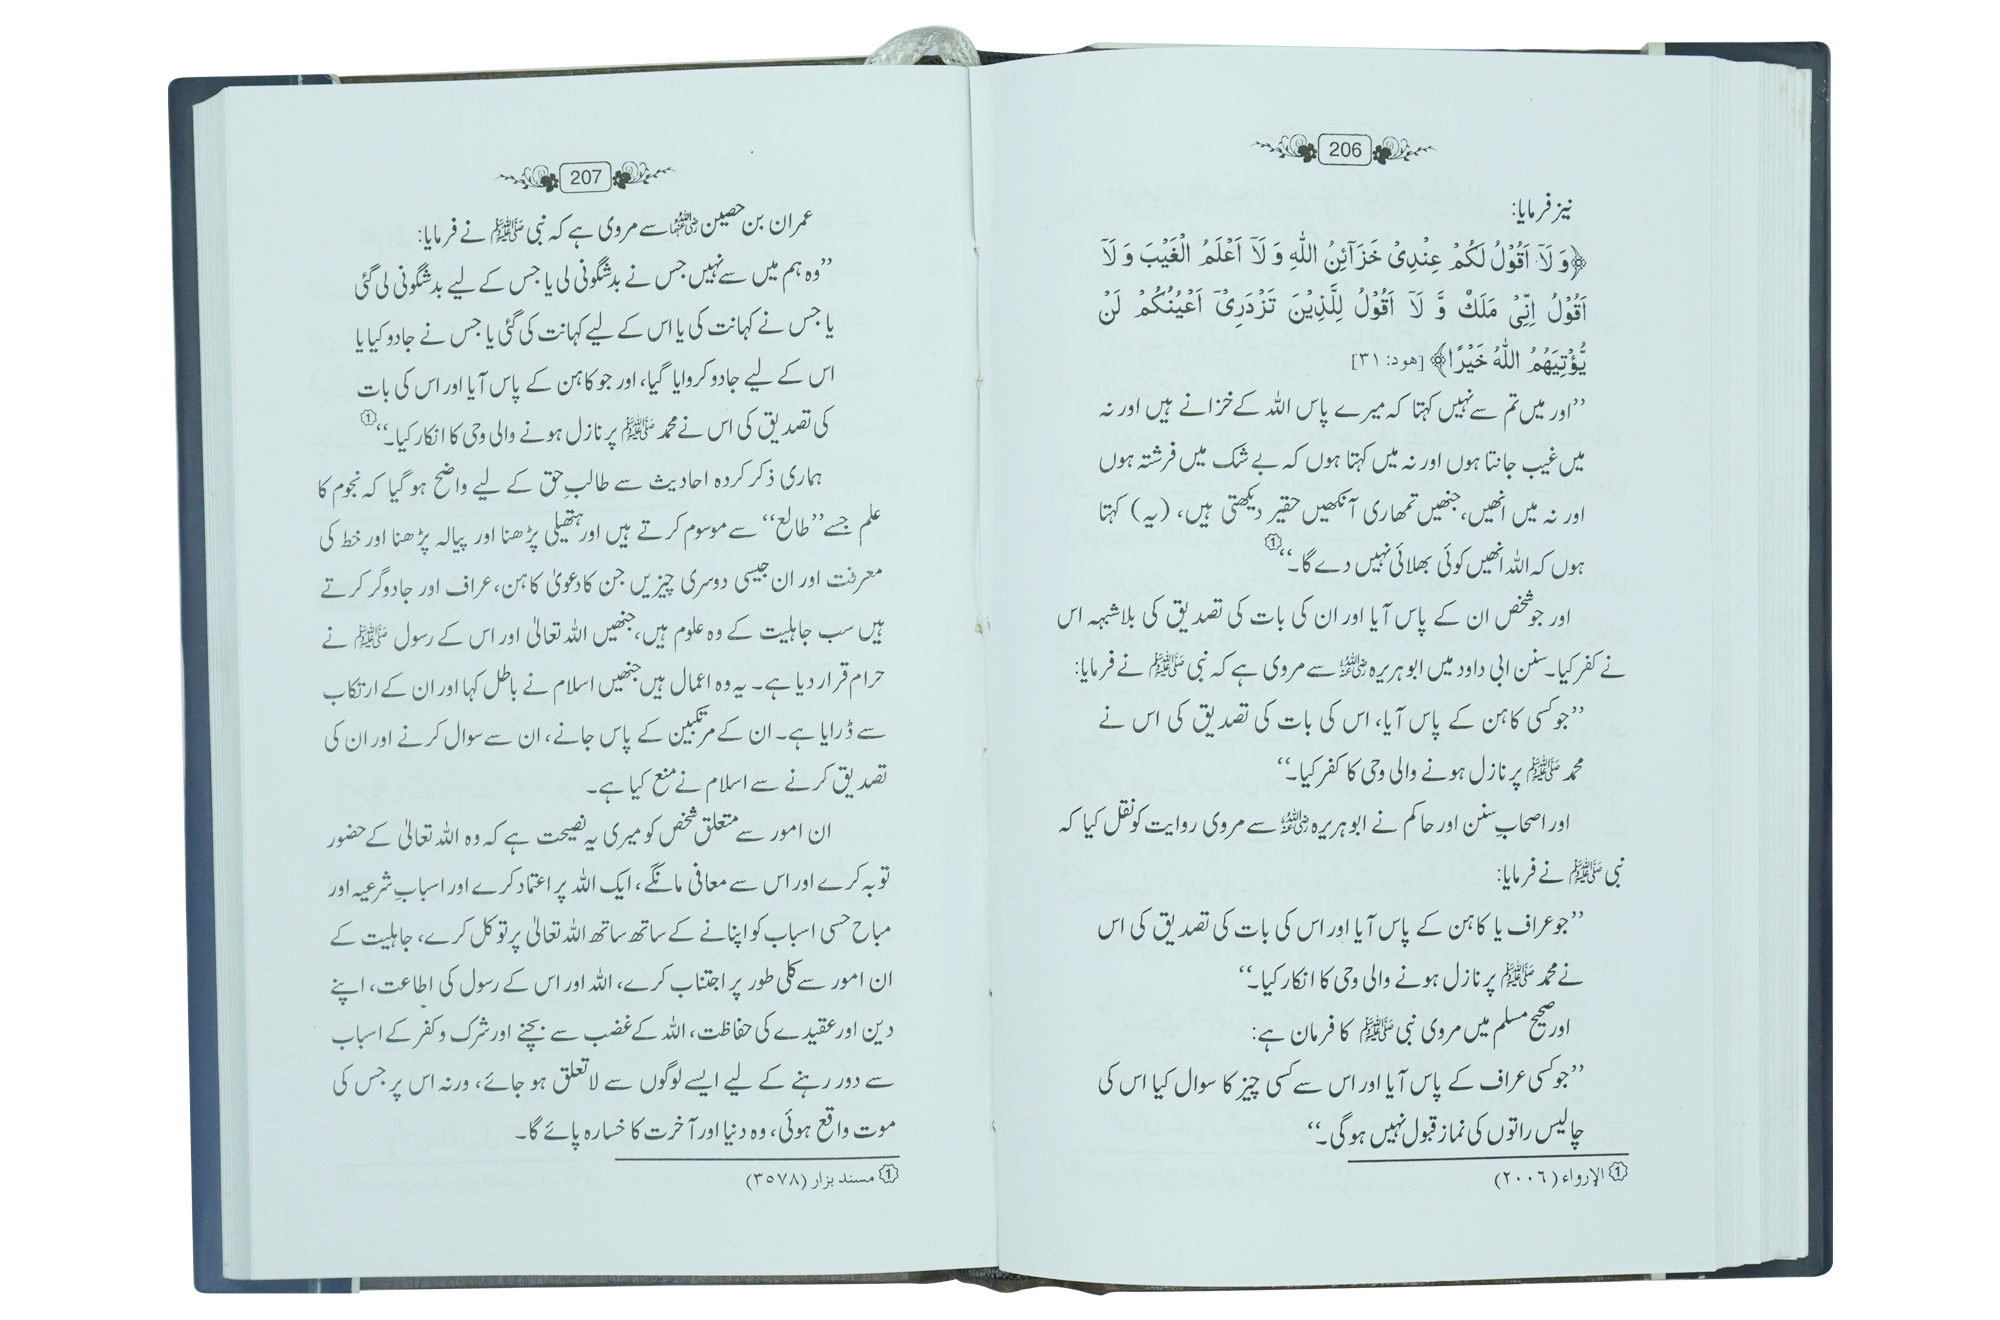 206
نیز فرمایا:
﴿وَ لَآ اَقُوْلُ لَكُمْ عِنْدِیْ خَزَآئِنُ اللّٰهِ وَ لَآ اَعْلَمُ الْغَیْبَ وَ لَآ
اَقُوْلُ اِنِّیْ مَلَكٌ وَّ لَآ اَقُوْلُ لِلَّذِیْنَ تَزْدَرِیْۤ اَعْیُنُكُمْ لَنْ
یُّؤْتِیَهُمُ اللّٰهُ خَیْرًا﴾ [هود: ٣١]
’’اور میں تم سے نہیں کہتا کہ میرے پاس اللہ کے خزانے ہیں اور نہ
میں غیب جانتا ہوں اور نہ میں کہتا ہوں کہ بے شک میں فرشتہ ہوں
اور نہ میں انھیں، جنھیں تمھاری آنکھیں حقیر دیکھتی ہیں، (یہ) کہتا
ہوں کہ اللہ انھیں کوئی بھلائی نہیں دے گا۔‘‘ ①
اور جو شخص ان کے پاس آیا اور ان کی بات کی تصدیق کی بلاشبہہ اس
نے کفر کیا۔ سنن ابی داود میں ابو ہریرہ رضی اللہ عنہ سے مروی ہے کہ نبی ﷺ نے فرمایا:
’’جو کسی کاہن کے پاس آیا، اس کی بات کی تصدیق کی اس نے
محمد ﷺ پر نازل ہونے والی وحی کا کفر کیا۔‘‘
اور اصحابِ سنن اور حاکم نے ابو ہریرہ رضی اللہ عنہ سے مروی روایت کو نقل کیا کہ
نبی ﷺ نے فرمایا:
’’جو عراف یا کاہن کے پاس آیا اور اس کی بات کی تصدیق کی اس
نے محمد ﷺ پر نازل ہونے والی وحی کا انکار کیا۔‘‘
اور صحیح مسلم میں مروی نبی ﷺ کا فرمان ہے:
’’جو کسی عراف کے پاس آیا اور اس سے کسی چیز کا سوال کیا اس کی
چالیس راتوں کی نماز قبول نہیں ہو گی۔‘‘
① الإرواء (٢٠٠٦)
207
عمران بن حصین رضی اللہ عنہما سے مروی ہے کہ نبی ﷺ نے فرمایا:
’’وہ ہم میں سے نہیں جس نے بدشگونی لی یا جس کے لیے بدشگونی لی گئی
یا جس نے کہانت کی یا اس کے لیے کہانت کی گئی یا جس نے جادو کیا یا
اس کے لیے جادو کروایا گیا، اور جو کاہن کے پاس آیا اور اس کی بات
کی تصدیق کی اس نے محمد ﷺ پر نازل ہونے والی وحی کا انکار کیا۔‘‘ ①
ہماری ذکر کردہ احادیث سے طالبِ حق کے لیے واضح ہو گیا کہ نجوم کا
علم جسے ’’طالع‘‘ سے موسوم کرتے ہیں اور ہتھیلی پڑھنا اور پیالہ پڑھنا اور خط کی
معرفت اور ان جیسی دوسری چیزیں جن کا دعویٰ کاہن، عراف اور جادوگر کرتے
ہیں سب جاہلیت کے وہ علوم ہیں، جنھیں اللہ تعالیٰ اور اس کے رسول ﷺ نے
حرام قرار دیا ہے۔ یہ وہ اعمال ہیں جنھیں اسلام نے باطل کہا اور ان کے ارتکاب
سے ڈرایا ہے۔ ان کے مرتکبین کے پاس جانے، ان سے سوال کرنے اور ان کی
تصدیق کرنے سے اسلام نے منع کیا ہے۔
ان امور سے متعلق شخص کو میری یہ نصیحت ہے کہ وہ اللہ تعالیٰ کے حضور
توبہ کرے اور اس سے معافی مانگے، ایک اللہ پر اعتماد کرے اور اسبابِ شرعیہ اور
مباح حسی اسباب کو اپنانے کے ساتھ ساتھ اللہ تعالیٰ پر توکل کرے، جاہلیت کے
ان امور سے کلی طور پر اجتناب کرے، اللہ اور اس کے رسول کی اطاعت، اپنے
دین اور عقیدے کی حفاظت، اللہ کے غضب سے بچنے اور شرک و کفر کے اسباب
سے دور رہنے کے لیے ایسے لوگوں سے لاتعلق ہو جائے، ورنہ اس پر جس کی
موت واقع ہوئی، وہ دنیا اور آخرت کا خسارہ پائے گا۔
① مسند بزار (٣٥٧٨)